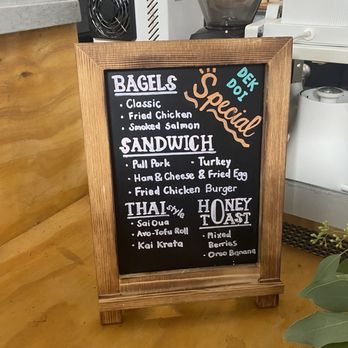 DEK
DOI
Special
BAGELS
• Classic
• Fried Chicken
• Smoked Salmon
SANDWICH
• Pull Pork • Turkey
• Ham & Cheese & Fried Egg
• Fried Chicken Burger
THAI style
• Sai Oua
• Avo-Tofu Roll
• Kai Krata
HONEY
TOAST
• Mixed
Berries
• Oreo Banana